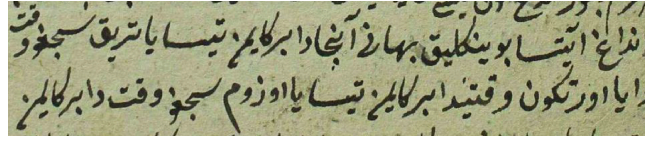 نداغ ایتسا بو ینکلیغ بهانی آنجا دا برکایمن تیسا یا تریق سیجغو وقت
را یا اورتکون وقتیندا برکایمن تیسا یا اوزوم سیجغو وقت دا برکایمن